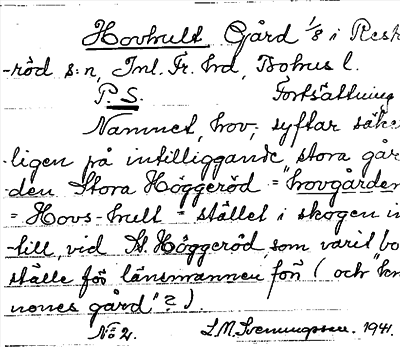 Hovhult Gård 1/8 i Resk
-röd s:n, Inl. Fr. hrd, Bohus l.
P.S. Fortsättning
Namnet, hov, syftar säke
ligen på intilliggande, stora går
den Stora Höggeröd = "hovgården
= Hovs-hult = stället i skogen in
-till, vid St. Höggeröd, som varit bo
ställe för länsmannen förr (och "kro
nones gård"?).
No 2. L.M. Svenungsson. 1941.